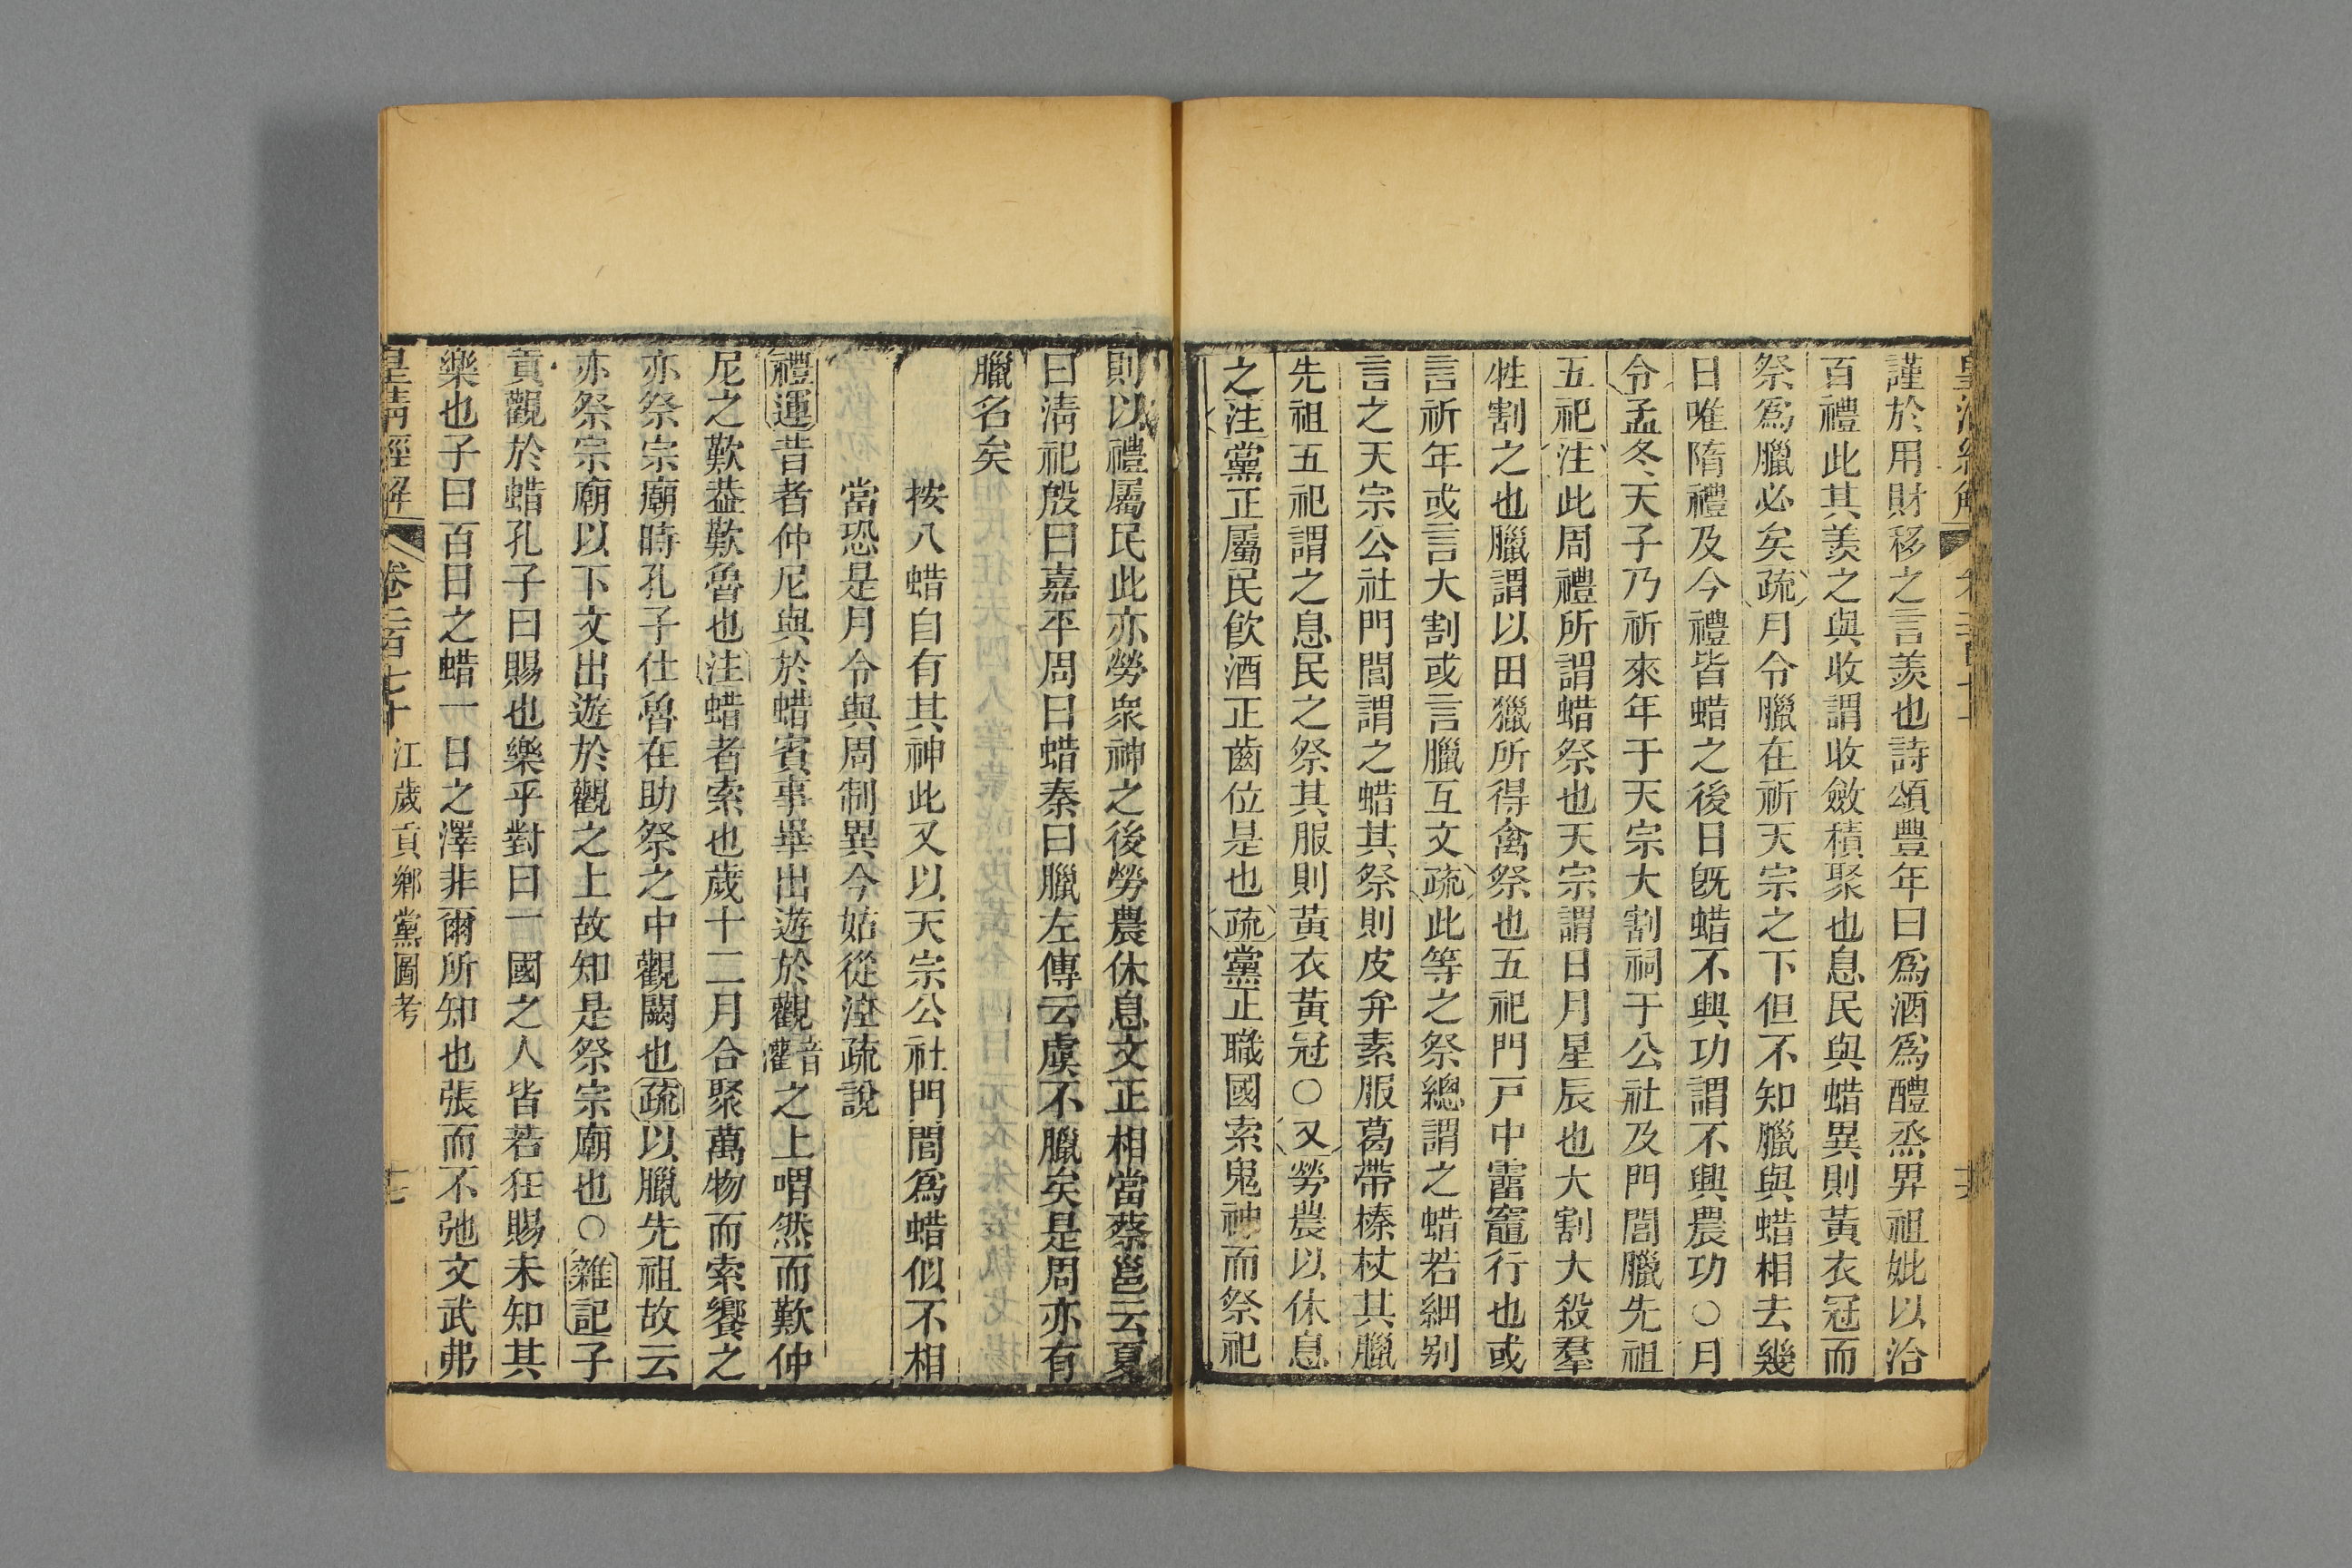 謹於用財移之言羨也詩頌豐年曰爲酒爲醴烝畀祖妣以洽
百禮此其羨之與收謂收斂積聚也息民與蜡異則黃衣冠而
祭爲臘必矣疏月令臘在祈天宗之下但不知臘與蜡相去幾
日唯隋禮及今禮皆蜡之後日旣蜡不興功謂不興農功○月
令孟冬天子乃祈來年于天宗大割祠于公社及門閭臘先祖
五祀注此周禮所謂蜡祭也天宗謂日月星辰也大割大殺羣
牲割之也臘謂以田獵所得禽祭也五祀門戸中霤竈行也或
言祈年或言大割或言臘互文疏此等之祭總謂之蜡若細別
言之天宗公社門閭謂之蜡其祭則皮弁素服葛帶榛杖其臘
先祖五祀謂之息民之祭其服則黃衣黃冠○又勞農以休息
之注黨正屬民飮酒正齒位是也疏黨正職國索鬼神而祭祀
則以禮屬民此亦勞衆神之後勞農休息文正相當蔡邕云夏
曰淸祀殷曰嘉平周曰蜡秦曰臘左傳云虞不臘矣是周亦有
臘名矣
按八蜡自有其神此又以天宗公社門閭爲蜡似不相
當恐是月令與周制異今姑從注疏說
禮運昔者仲尼與於蜡賓事畢出遊於觀音灌之上喟然而歎仲
尼之歎葢歎魯也注蜡者索也歲十二月合聚萬物而索饗之
亦祭宗廟時孔子仕魯在助祭之中觀闕也疏以臘先祖故云
亦祭宗廟以下文出遊於觀之上故知是祭宗廟也○雜記子
貢觀於蜡孔子曰賜也樂乎對曰一國之人皆若狂賜未知其
樂也子曰百日之蜡一日之澤非爾所知也張而不弛文武弗
皇淸經解 卷二百七十 江歲貢鄉黨圖考